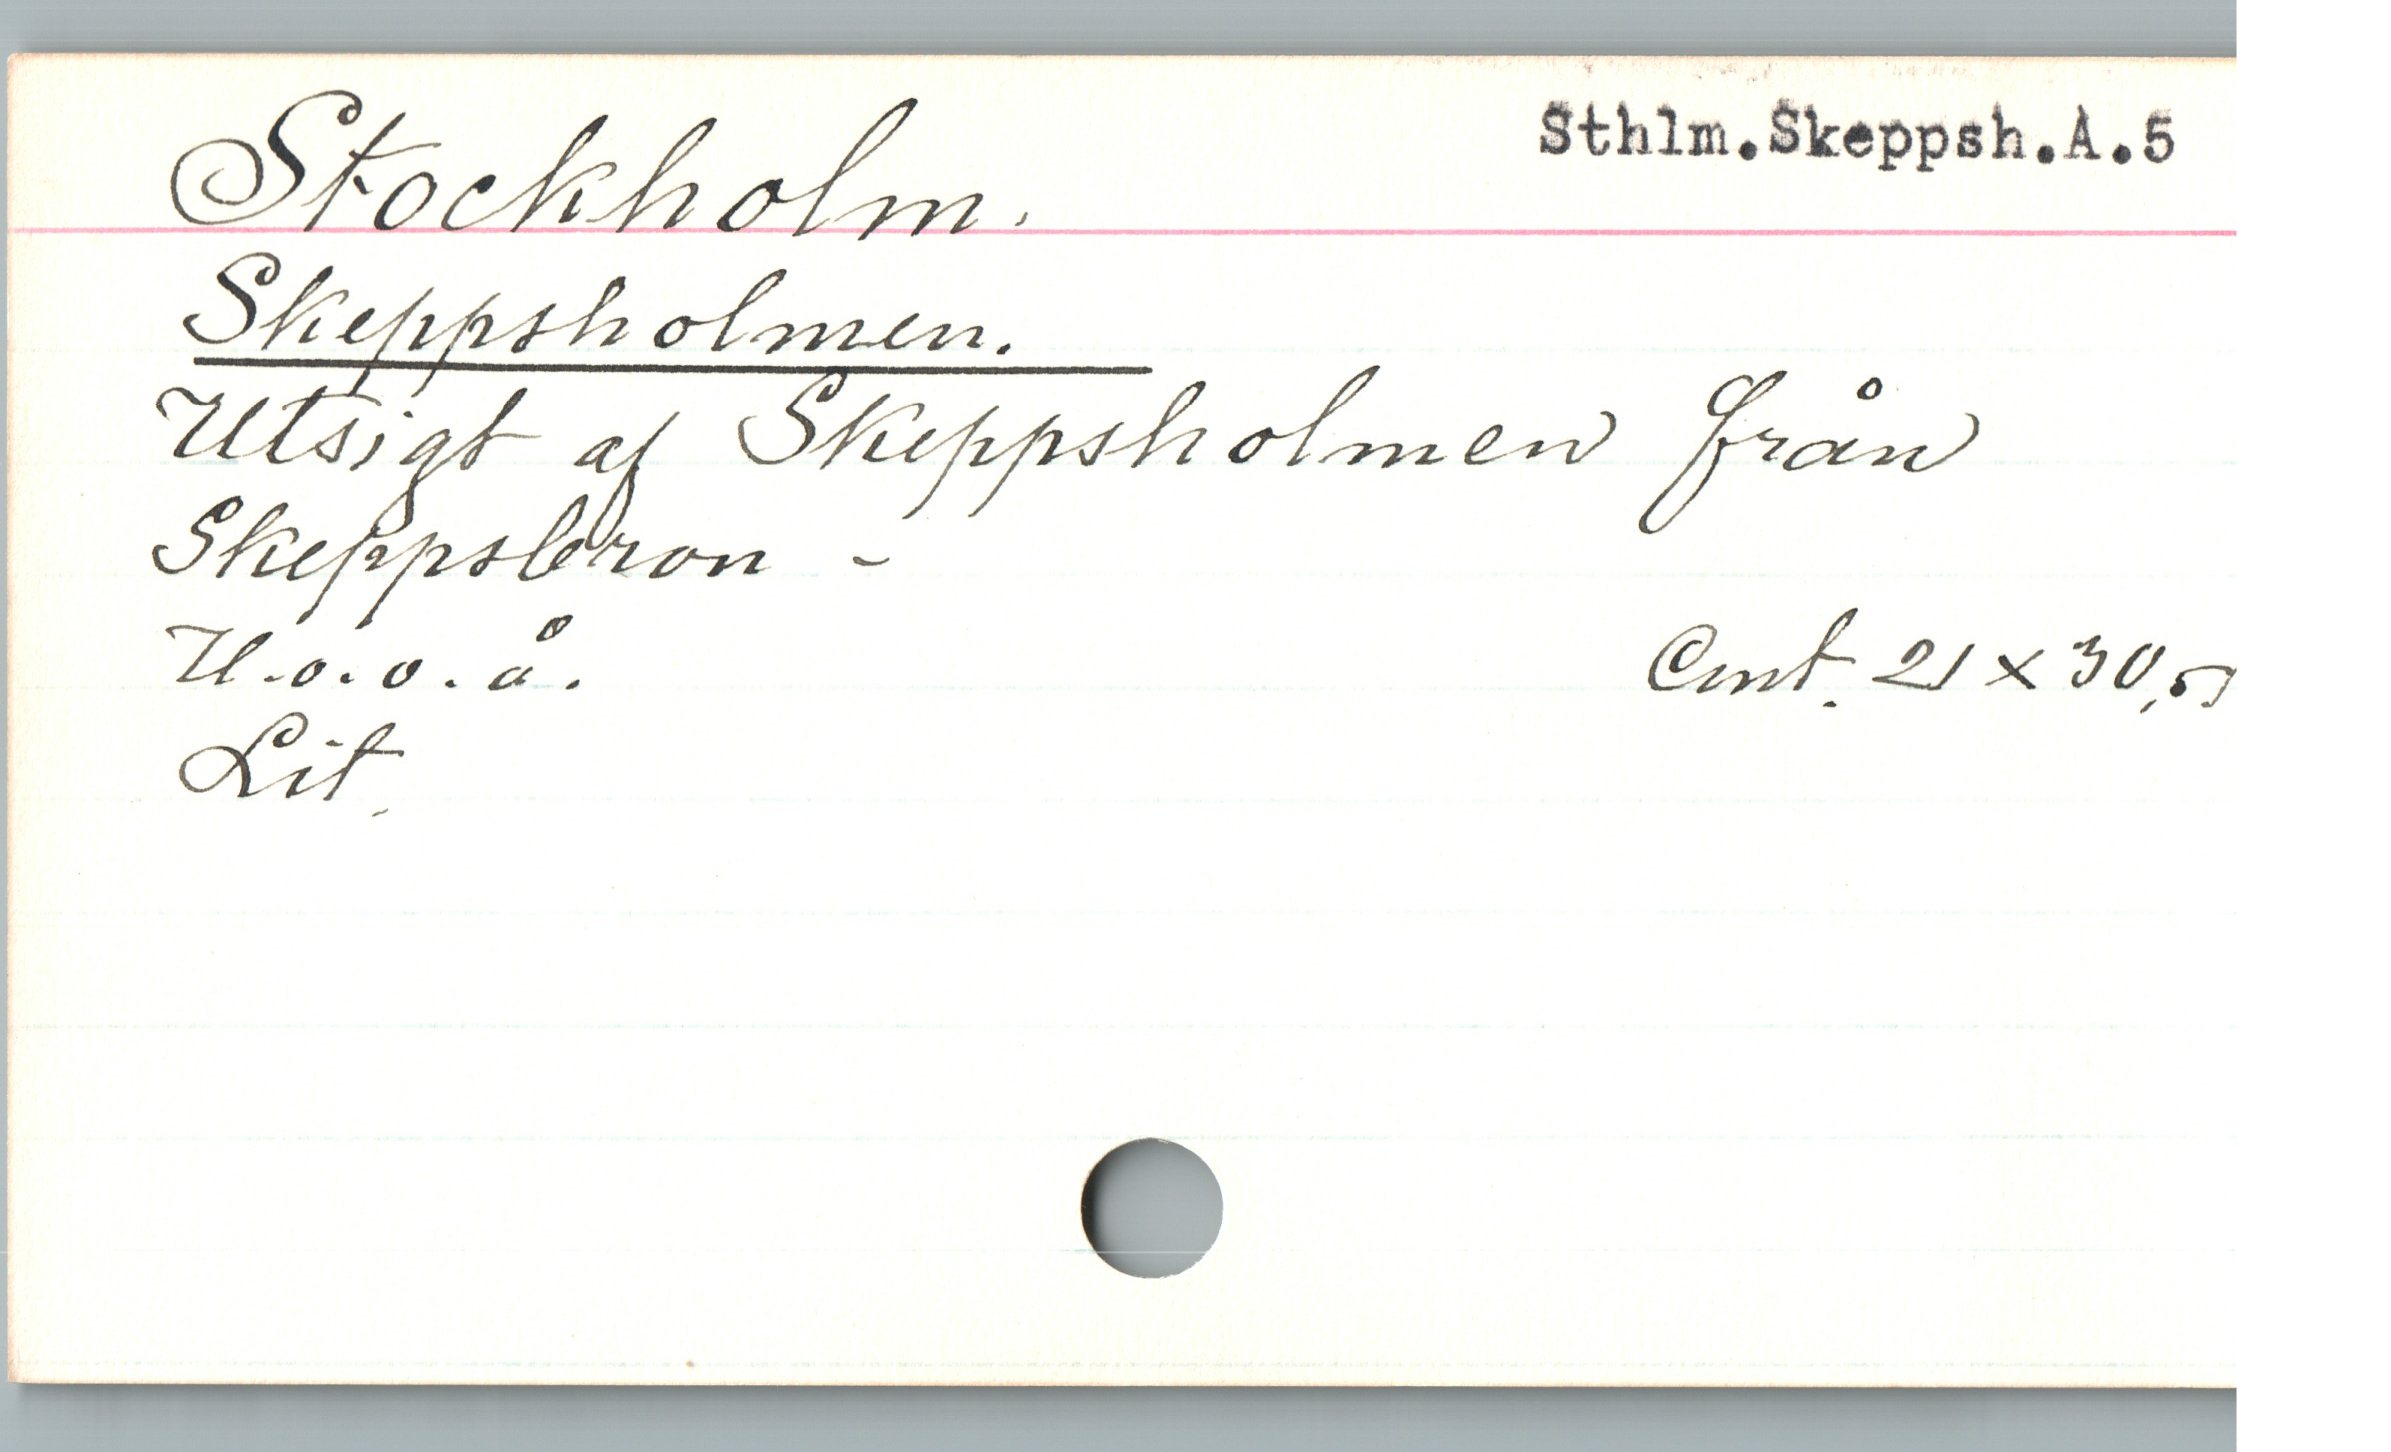 Sthlm.Skeppsh.A.5
Stockholm.
Skeppsholmen.
Utsigt af Skeppsholmen från
Skeppsbron -
U.o.o.å.
Cent. 21 x 30,5
Lit.